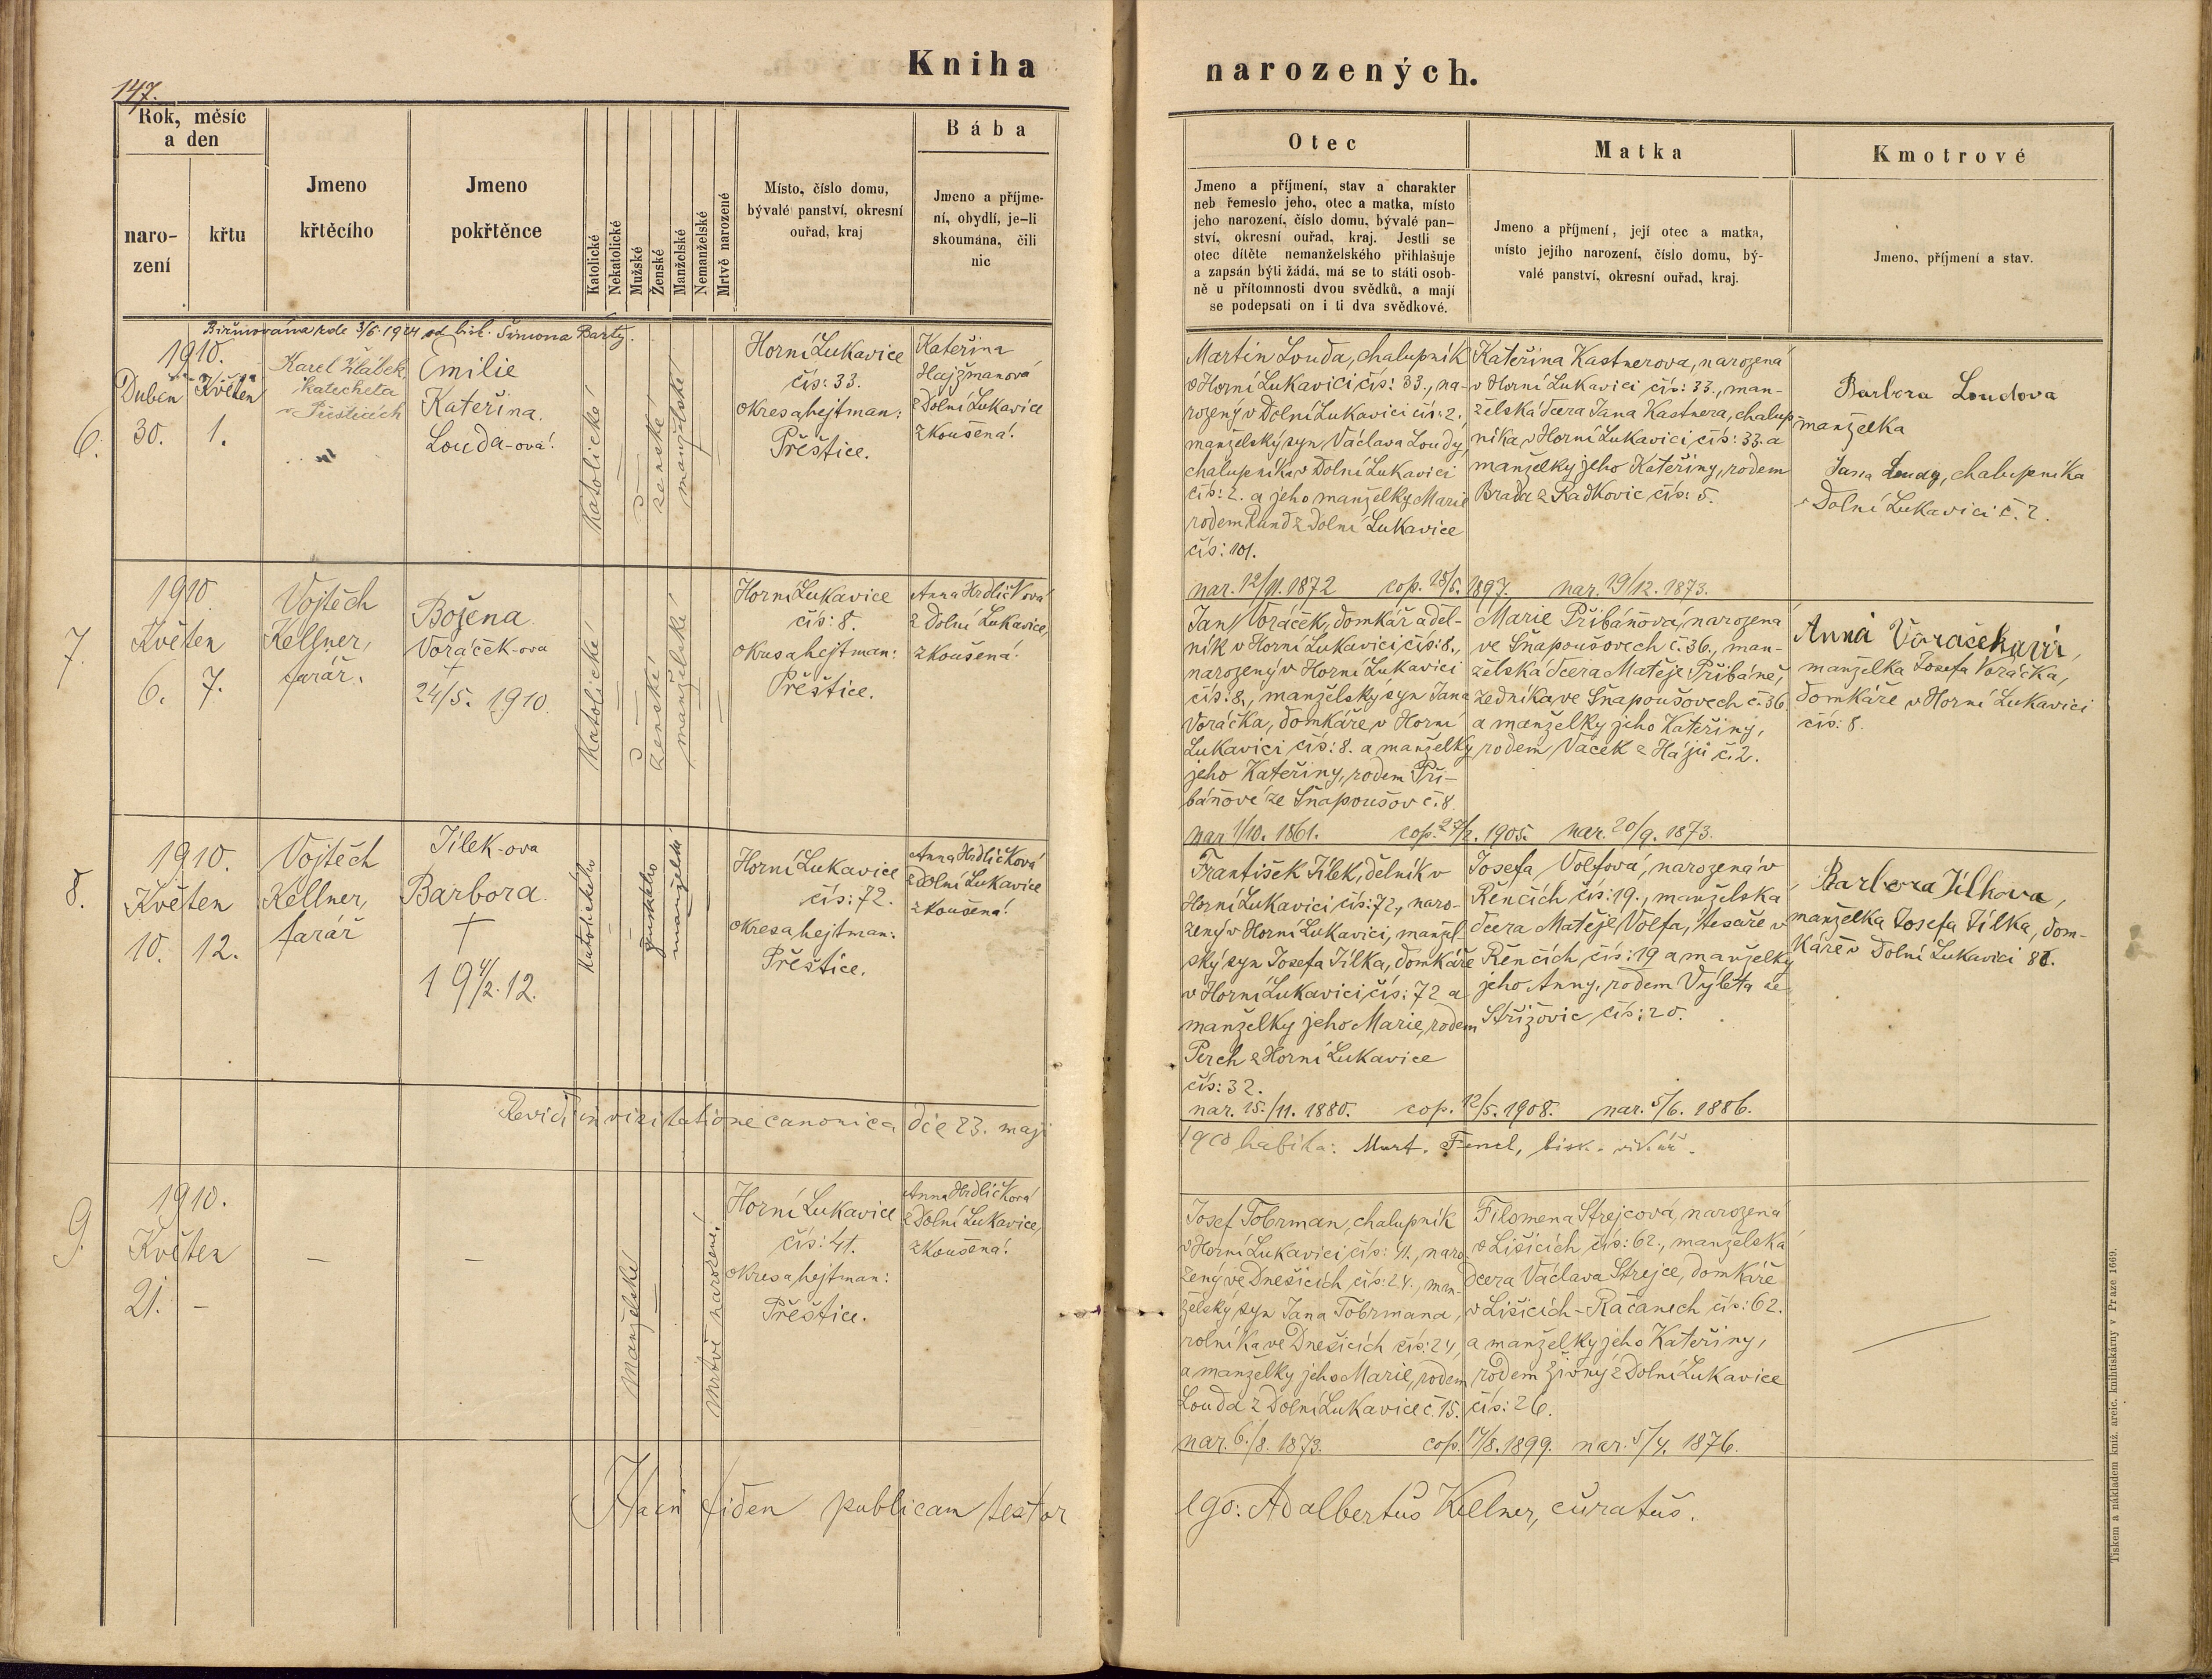 147.
Kniha
narozených.
Rok, měsíc
a den
naro-
zení
křtu
Jmeno
křtěcího
Jmeno
pokřtěnce
Katolické
Nekatolické
Mužské
Ženské
Manželské
Nemanželské
Mrtvě narozené
Místo, číslo domu,
bývalé panství, okresní
ouřad, kraj
Bába
Jmeno a příjme-
ní, obydlí, je-li
skoumána, čili
nic
Otec
Jmeno a příjmení, stav a charakter
neb řemeslo jeho, otec a matka, místo
jeho narození, číslo domu, bývalé pan-
ství, okresní ouřad, kraj. Jestli se
otec dítěte nemanželského přihlašuje
a zapsán býti žádá, má se to státi osob-
ně u přítomnosti dvou svědků, a mají
se podepsati on i ti dva svědkové.
Matka
Jmeno a příjmení, její otec a matka,
místo jejího narození, číslo domu, bý-
valé panství, okresní ouřad, kraj.
Kmotrové
Jmeno, příjmení a stav.
Biřmována zde 3/6. 1924 od bisk. Šimona Bárty.
6.
1910.
Duben Květen
30. 1.
Karel Žlábek,
katecheta
v Přešticích
Emilie
Kateřina.
Louda-ová.
Katolické
ženské
manželské
Horní Lukavice
čís: 33.
okres a hejtman:
Přeštice.
Kateřina
Hajžmanová
z Dolní Lukavice
zkoušená.
Martin Louda, chalupník
v Horní Lukavici čís: 33., na-
rozený v Dolní Lukavici čís: 2.,
manželský syn Václava Loudy,
chalupníka v Dolní Lukavici
čís: 2. a jeho manželky Marie
rodem Rund z Dolní Lukavice
čís: 101.
nar. 12/11. 1872 cop. 18/5. 1897. nar. 29/12. 1873.
Kateřina Kastnerova, narozená
v Horní Lukavici čís: 33., man-
želská dcera Jana Kastnera, chalup-
níka v Horní Lukavici čís: 33. a
manželky jeho Kateřiny, rodem
Brada z Radkovic čís: 5.
Barbora Loudova
manželka
Jana Loudy, chalupníka
v Dolní Lukavici č. 2.
7.
1910
Květen
6. 7.
Vojtěch
Kellner,
farář.
Božena
Voráček-ova
†
24/5. 1910.
Katolické
ženské
manželské
Horní Lukavice
čís: 8.
okres a hejtman:
Přeštice.
Anna Hrdličková
z Dolní Lukavice,
zkoušená.
Jan Voráček, domkář a děl-
ník v Horní Lukavici čís: 8.,
narozený v Horní Lukavici
čís: 8., manželský syn Jana
Voráčka, domkáře v Horní
Lukavici čís: 8. a manželky
jeho Kateřiny, rodem Při-
báňové ze Snapoušov č. 8.
nar. 1/10. 1861. cop. 27/2. 1905. nar. 20/9. 1873.
Marie Přibáňová, narozená
ve Snapoušovech č. 36., man-
želská dcera Matěje Přibáně,
zedníka ve Snapoušovech č. 36
a manželky jeho Kateřiny,
rodem Vacek z Hájů č. 2.
Anna Voračková,
manželka Josefa Voráčka,
domkáře v Horní Lukavici
čís: 8.
8.
1910.
Květen
10. 12.
Vojtěch
Kellner,
farář
Jílek-ova
Barbora
†
19 4/2. 12.
Katolického
ženského
manželské
Horní Lukavice
čís: 72.
okres a hejtman:
Přeštice.
Anna Hrdličková
z Dolní Lukavice
zkoušená.
František Jílek, dělník v
Horní Lukavici čís: 72., naro-
zený v Horní Lukavici, manžel-
ský syn Josefa Jílka, domkáře
v Horní Lukavici, čís: 72 a
manželky jeho Marie, rodem
Perch z Horní Lukavice
čís: 32.
nar. 15./11. 1880. cop. 12/5. 1908. nar. 5/6. 1886.
Josefa Volfová, narozená v
Řenčích čís: 19., manželská
dcera Matěje Volfa, tesaře v
Řenčích čís: 19 a manželky
jeho Anny, rodem Výleta ze
Střížovic čís: 20.
Barbora Jílkova,
manželka Josefa Jílka, dom-
káře v Dolní Lukavici 81.
Revidi in visitatione canonica die 23. maji
1910 habita: Mart. Fencl, bisk. vikář.
9.
1910.
Květen
21. –
–
–
Manželské
Mrtvě narozené.
Horní Lukavice
čís: 41.
okres a hejtman:
Přeštice.
Anna Hrdličková
z Dolní Lukavice,
zkoušená.
Josef Tobrman, chalupník
v Horní Lukavici čís: 41., naro-
zený ve Dnešicích čís: 24., man-
želský syn Jana Tobrmana,
rolníka ve Dnešicích čís: 24,
a manželky jeho Marie, rodem
Louda z Dolní Lukavice č. 15.
nar. 6./8. 1873. cop. 17/8. 1899. nar. 5/4. 1876.
Filomena Strejcová, narozená
v Lišicích čís: 62., manželská
dcera Václava Strejce, domkáře
v Lišicích-Račanech čís: 62.
a manželky jeho Kateřiny,
rodem Živný z Dolní Lukavice
čís: 26.
Hacn fidem publicam testor
ego: Adalbertus Kellner, curatus.
Tiskem a nákladem kniž. arcic. knihtiskárny v Praze 1669.